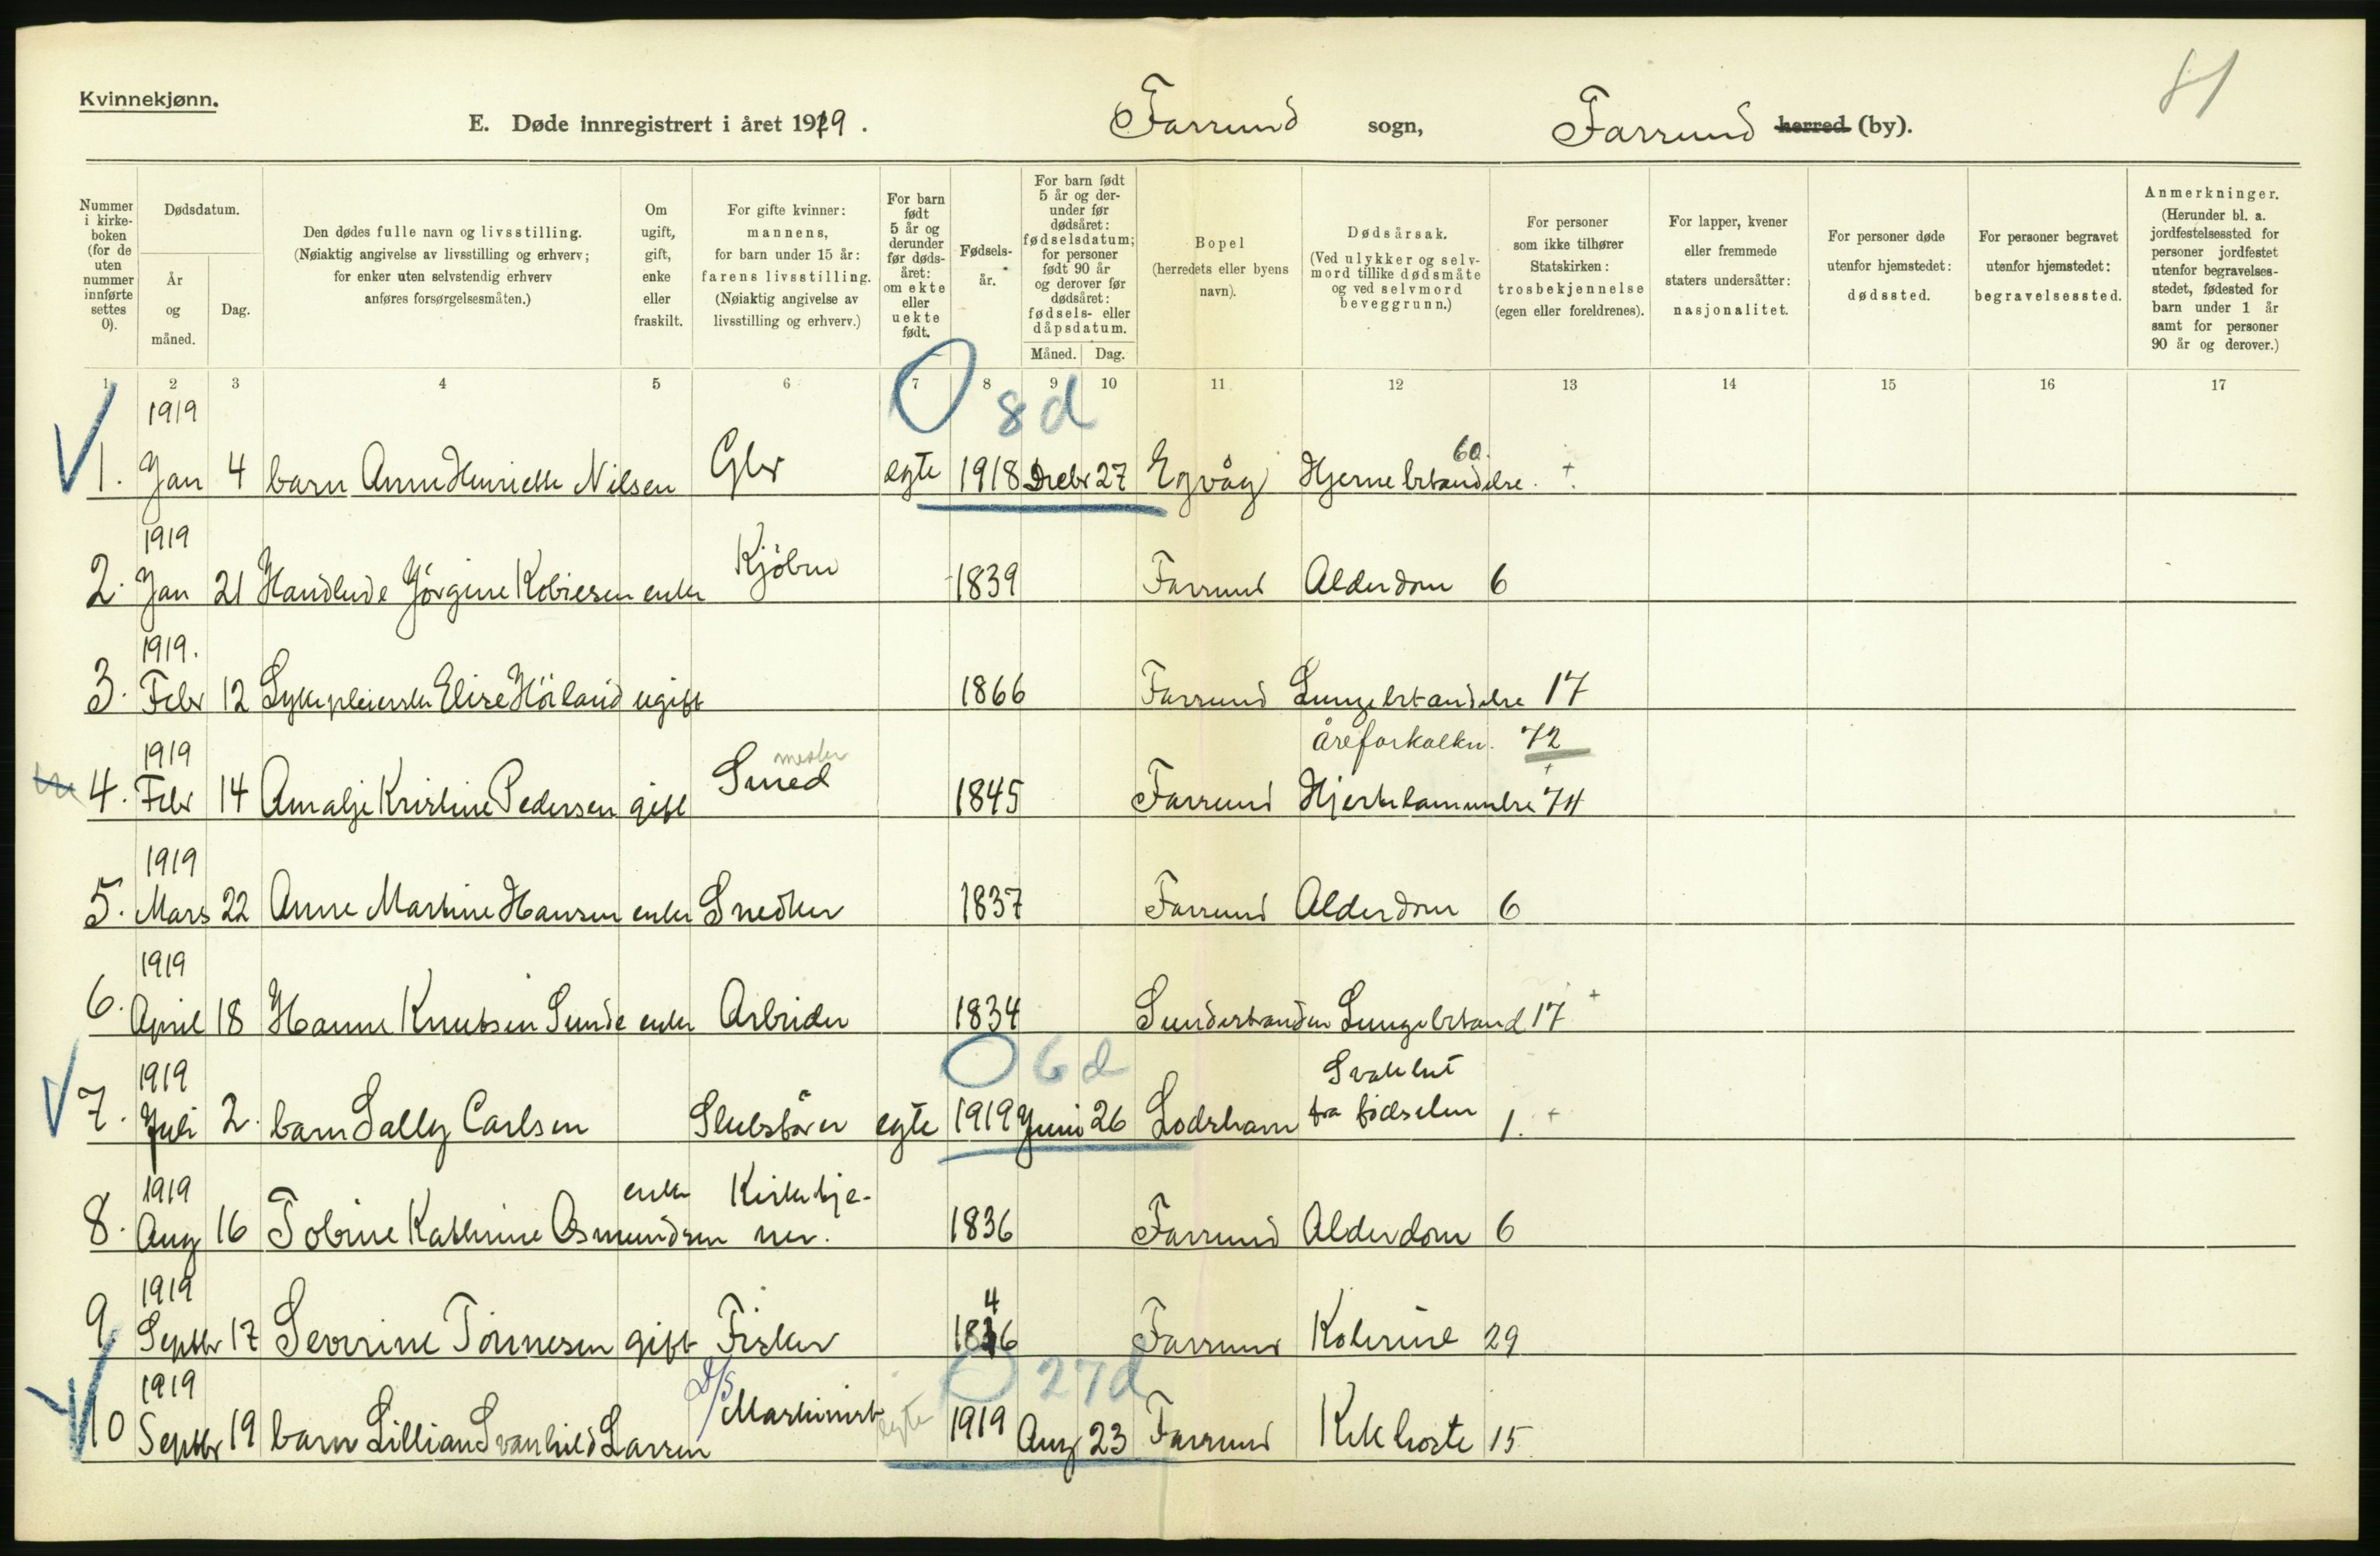 Kvinnekjønn.
E. Døde innregistrert i året 1919. Farsund sogn, Farsund herred (by).
Nummer i kirkeboken (for de uten nummer innførte settes 0).
Dødsdatum.
År og måned.
Dag.
Den dødes fulle navn og livsstilling.
(Nøiaktig angivelse av livsstilling og erhverv;
for enker uten selvstendig erhverv
anføres forsørgelsesmåten.)
Om ugift, gift, enke eller fraskilt.
For gifte kvinner: mannens, for barn under 15 år: farens livsstilling. (Nøiaktig angivelse av livsstilling og erhverv.)
For barn født 5 år og derunder før dødsåret: om ekte eller uekte født.
Fødselsår.
For barn født 5 år og derunder før dødsåret: fødselsdatum; for personer født 90 år og derover før dødsåret: fødsels- eller dåpsdatum.
Måned. Dag.
Bopel (herredets eller byens navn).
Dødsårsak. (Ved ulykker og selvmord tillike dødsmåte og ved selvmord beveggrunn.)
For personer som ikke tilhører Statskirken: trosbekjennelse (egen eller foreldrenes).
For lapper, kvener eller fremmede staters undersåtter: nasjonalitet.
For personer døde utenfor hjemstedet: dødssted.
For personer begravet utenfor hjemstedet: begravelsessted.
Anmerkninger. (Herunder bl. a. jordfestelsessted for personer jordfestet utenfor begravelsesstedet, fødested for barn under 1 år samt for personer 90 år og derover.)
1 2 3 4 5 6 7 8 9 10 11 12 13 14 15 16 17
1919 0 8d
1. Jan 4 barn Anne Henriette Nilsen egte 1918 Decbr 27 Egvåg Hjernebetændelse 60. +
1919
2. Jan 21 Jørgine enke Kjøbm 1839 Farsund Alderdom 6
1919.
3. Febr 12 Sykepleierske Elise Höiland ugift 1866 Farsund Lungebetændelse 17
1919 Åreforkalkn. 72
4. Febr 14 Amalje Kristine Pedersen gift Smed mester 1845 Farsund Hjertelammelse 74
1919
5. Mars 22 Anne Martine Hansen enke Snedker 1837 Farsund Alderdom 6
1919
6. April 18 Hanne Knutsen Sunde enke Arbeider 1834 Sundestranden Lungebetænd 17 +
1919 0 6d Svakhet
7. Juli 2. barn Sally Carlsen egte 1919 Juni 26 Lodshavn fra fødselen 1. +
1919 enke Kirketje-
8. Aug 16 Tobine Kathrine Osmundsen ner. 1836 Farsund Alderdom 6
1919 4
9. Septbr 17 Severine Tønnesen gift Fisker 1836 Farsund Kolerine 29
1919 D/S 0 27d
10 Septbr 19 barn Lillian Svanhild Larsen Maskinist egte 1919 Aug 23 Farsund Kikhoste 15